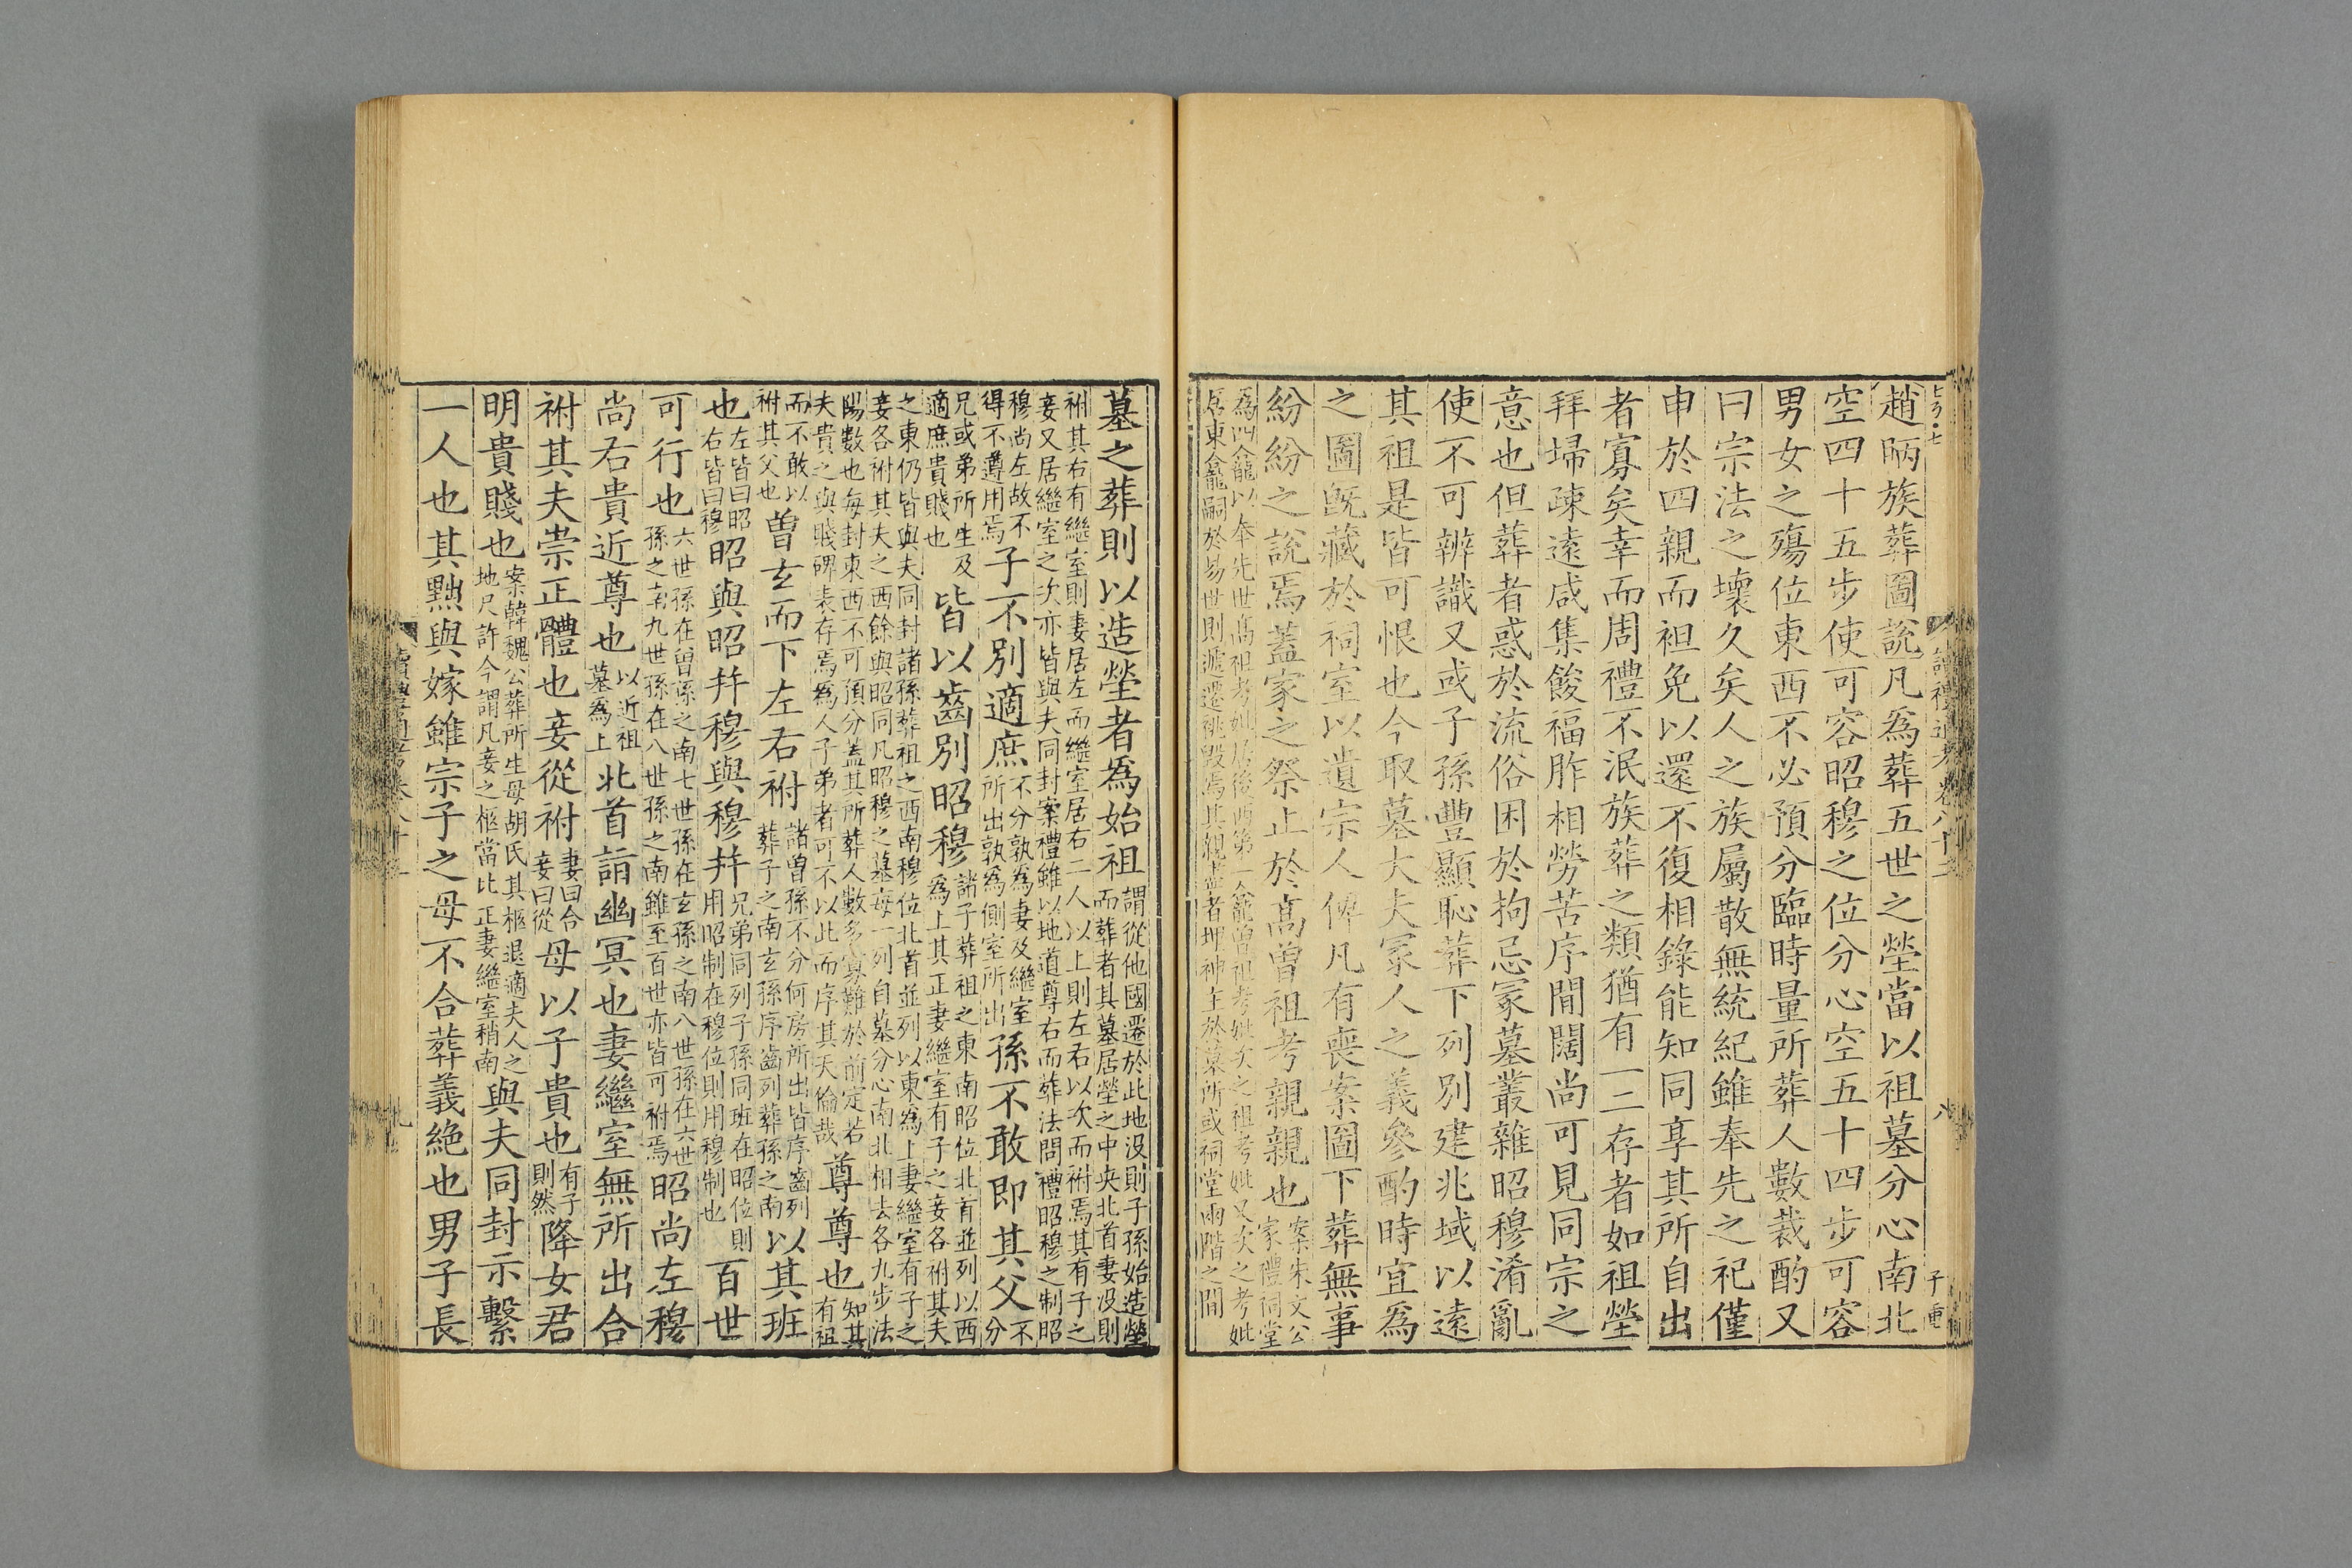 趙昞族葬圖說凡爲葬五世之塋當以祖墓分心南北
空四十五步使可容昭穆之位分心空五十四步可容
男女之殤位東西不必預分臨時量所葬人數裁酌又
曰宗法之壞久矣人之族屬散無統紀雖奉先之祀僅
申於四親而袒免以還不復相錄能知同享其所自出
者寡矣幸而周禮不泯族葬之類猶有一二存者如祖塋
拜埽疎遠咸集餕福胙相勞苦序間闊尚可見同宗之
意也但葬者惑於流俗困於拘忌冢墓叢雜昭穆淆亂
使不可辨識又或子孫豐顯恥葬下列別建兆域以遠
其祖是皆可恨也今取墓大夫冢人之義參酌時宜爲
之圖旣藏於祠室以遺宗人俾凡有喪案圖下葬無事
紛紛之說焉蓋家之祭止於高曾祖考親親也案朱文公
家禮祠堂
爲四龕以奉先世高祖考妣居後西第一龕曾祖考妣次之祖考妣又次之考妣
居東龕嗣於易世則遞遷祧毀焉其親盡者埋神主於墓所或祠堂兩階之間
子重
墓之葬則以造塋者爲始祖謂從他國遷於此地没則子孫始造塋
而葬者其墓居塋之中央北首妻没則
祔其右有繼室則妻居左而繼室居右二人以上則左右以次而祔焉其有子之
妾又居繼室之次亦皆與夫同封案禮雖以地道尊右而葬法問禮昭穆之制昭
穆尚左故不
得不遵用焉子不別適庶不分孰爲妻及繼室
所出孰爲側室所出孫不敢即其父不
分
兄或弟所生及
適庶貴賤也皆以齒別昭穆諸子葬祖之東南昭位北首並列以西
爲上其正妻繼室有子之妾各祔其夫
之東仍皆與夫同封諸孫葬祖之西南穆位北首並列以東爲上妻繼室有子之
妾各祔其夫之西餘與昭同凡昭穆之墓每一列自墓分心南北相去各九步法
陽數也每封東西不可預分蓋其所葬人數多寡難於前定若
夫貴之與賤碑表存焉爲人子弟者可不以此而序其天倫哉尊尊也知其
有祖
而不敢以
祔其父也曾玄而下左右祔諸曾孫不分何房所出皆序齒列
葬子之南玄孫序齒列葬孫之南以其班
也左皆曰昭
右皆曰穆昭與昭并穆與穆并兄弟同列子孫同班在昭位則
用昭制在穆位則用穆制也百世
可行也六世孫在曾孫之南七世孫在玄孫之南八世孫在六世
孫之南九世孫在八世孫之南雖至百世亦皆可祔焉昭尚左穆
尚右貴近尊也以近祖
墓爲上北首詣幽冥也妻繼室無所出合
祔其夫崇正體也妾從祔妻曰合
妾曰從母以子貴也有子
則然降女君
明貴賤也案韓魏公葬所生母胡氏其柩退適夫人之
地尺許今謂凡妾之柩當比正妻繼室稍南與夫同封示繫
一人也其黜與嫁雖宗子之母不合葬義絶也男子長